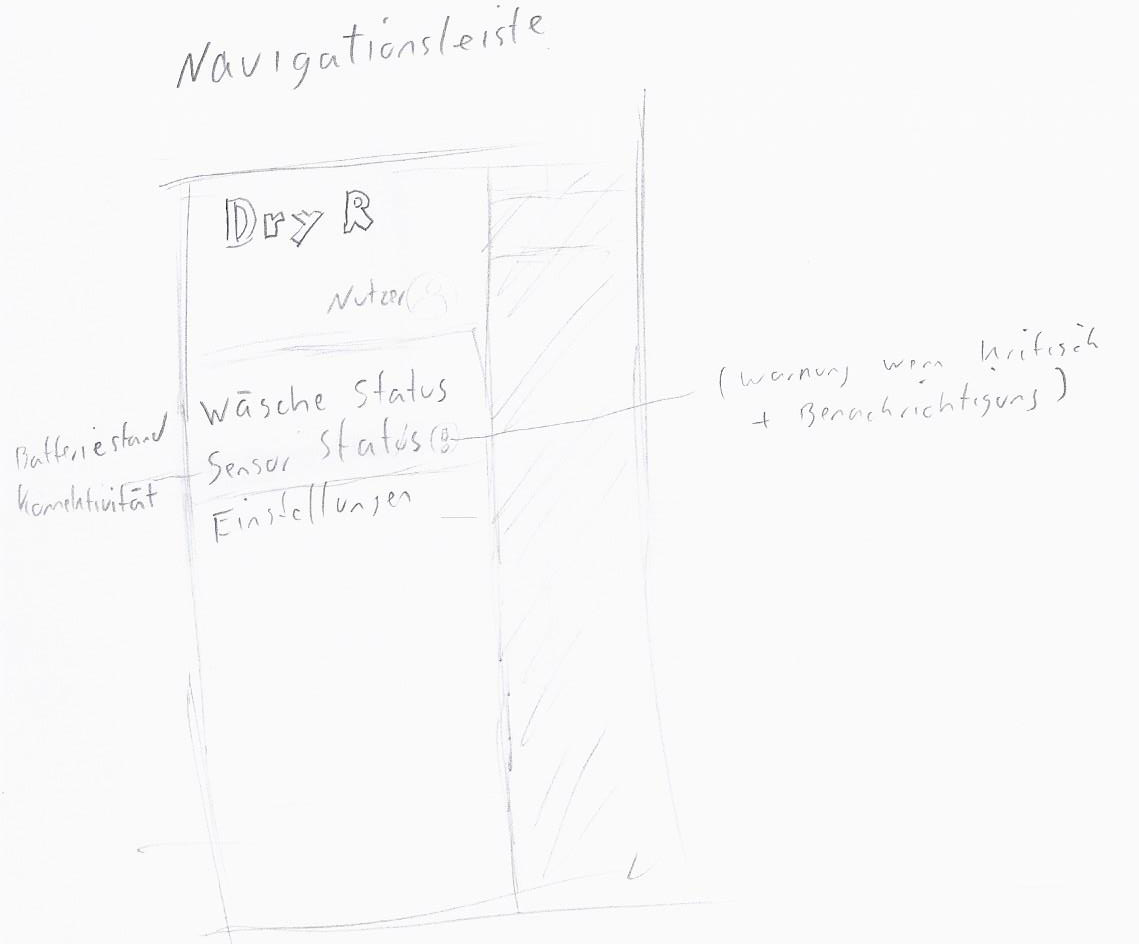 Navigationsleiste
Dry R
Nutzer
Wäsche Status
Sensor Status
Einstellungen
Batteriestand
Konnektivität
(Warnung wenn kritisch
+ Benachrichtigung)